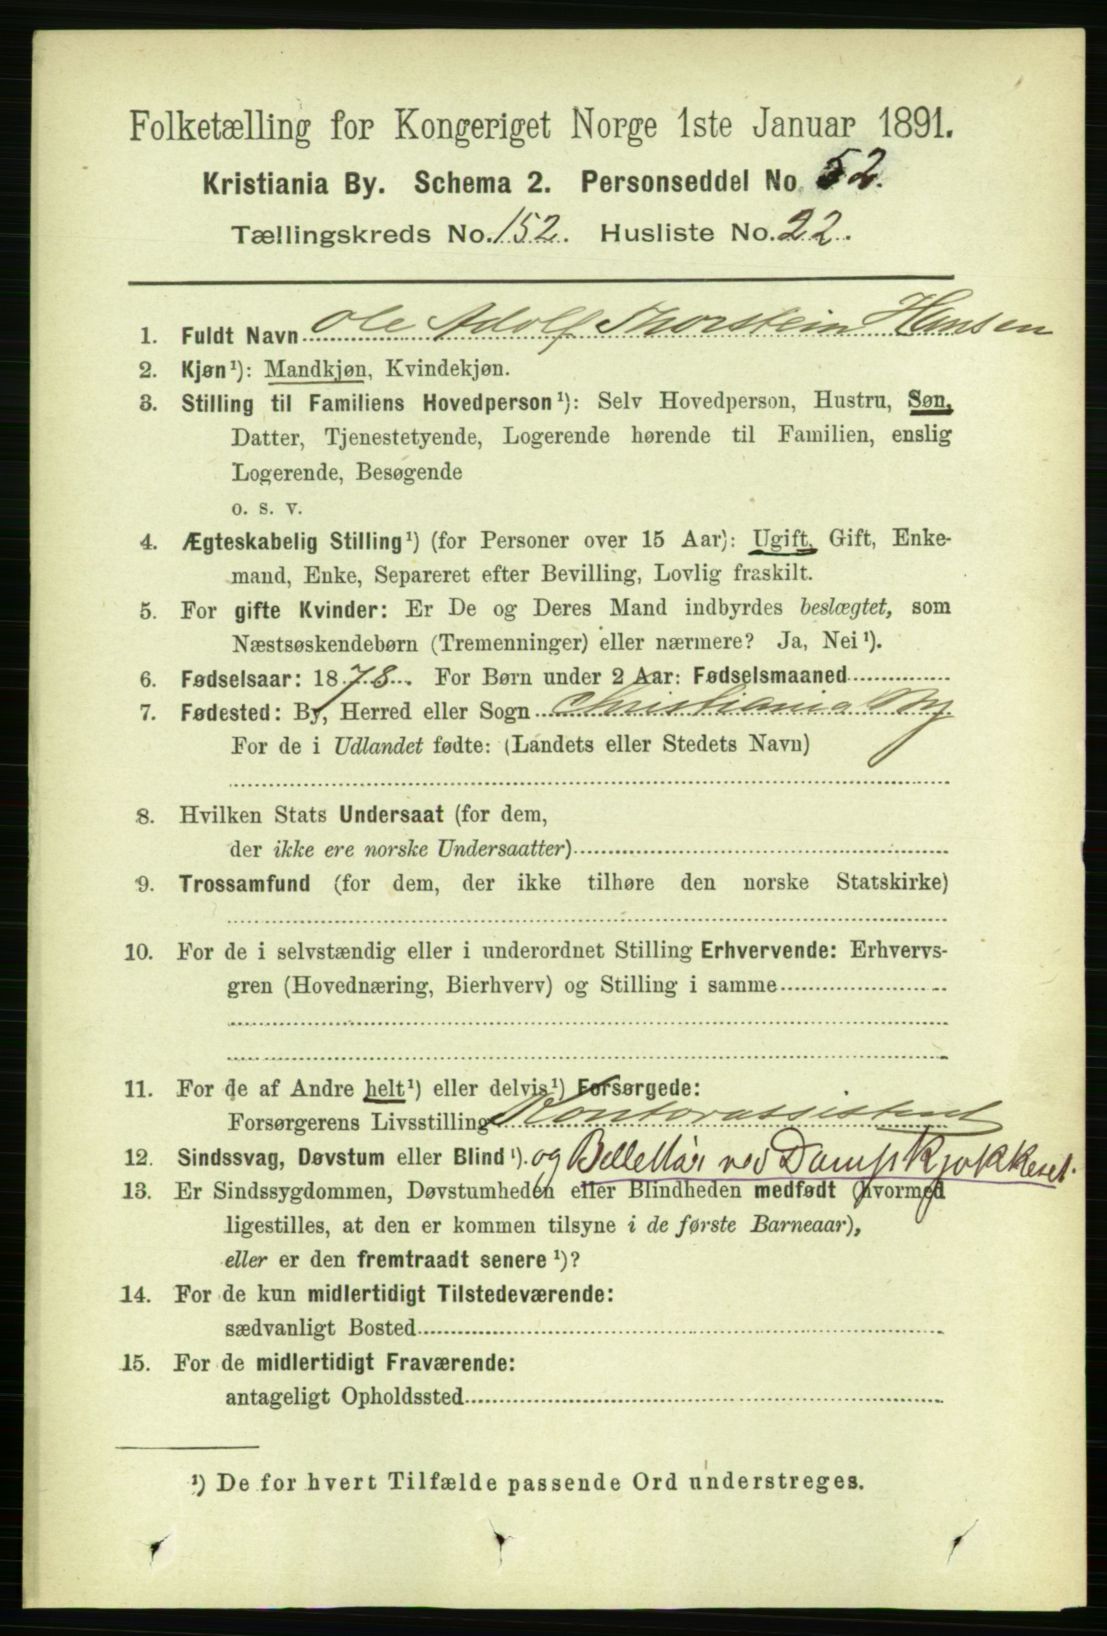 Folketælling for Kongeriget Norge 1ste Januar 1891.
Kristiania By. Schema 2. Personseddel No. 52.
Tællingskreds No. 152. Husliste No. 22.
1. Fuldt Navn Ole Adolf Thorstein Hansen
2. Kjøn¹): Mandkjøn, Kvindekjøn.
3. Stilling til Familiens Hovedperson¹): Selv Hovedperson, Hustru, Søn,
Datter, Tjenestetyende, Logerende hørende til Familien, enslig
Logerende, Besøgende
o. s. v.
4. Ægteskabelig Stilling¹) (for Personer over 15 Aar): Ugift, Gift, Enke-
mand, Enke, Separeret efter Bevilling, Lovlig fraskilt.
5. For gifte Kvinder: Er De og Deres Mand indbyrdes beslægtet, som
Næstsøskendebørn (Tremenninger) eller nærmere? Ja, Nei¹).
6. Fødselsaar: 1878. For Børn under 2 Aar: Fødselsmaaned
7. Fødested: By, Herred eller Sogn Christiania By
For de i Udlandet fødte: (Landets eller Stedets Navn)
8. Hvilken Stats Undersaat (for dem,
der ikke ere norske Undersaatter)
9. Trossamfund (for dem, der ikke tilhøre den norske Statskirke)
10. For de i selvstændig eller i underordnet Stilling Erhvervende: Erhvervs-
gren (Hovednæring, Bierhverv) og Stilling i samme
11. For de af Andre helt¹) eller delvis¹) Forsørgede:
Forsørgerens Livsstilling Kontorassistent
12. Sindssvag, Døvstum eller Blind¹). og Bellettør ved Dampkjøkkenet.
13. Er Sindssygdommen, Døvstumheden eller Blindheden medfødt (hvormed
ligestilles, at den er kommen tilsyne i de første Barneaar),
eller er den fremtraadt senere¹)?
14. For de kun midlertidigt Tilstedeværende:
sædvanligt Bosted
15. For de midlertidigt Fraværende:
antageligt Opholdssted
¹) De for hvert Tilfælde passende Ord understreges.